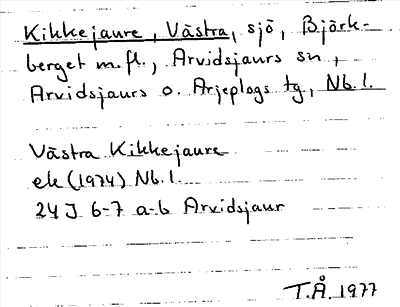 Kikkejaure, Västra, sjö, Björk-
berget m.fl., Arvidsjaurs sn,
Arvidsjaurs o. Arjeplogs tg, Nb. l.
Västra Kikkejaure
ek (1974) Nb. l.
24 J 6-7 a-b Arvidsjaur
T.Å. 1977